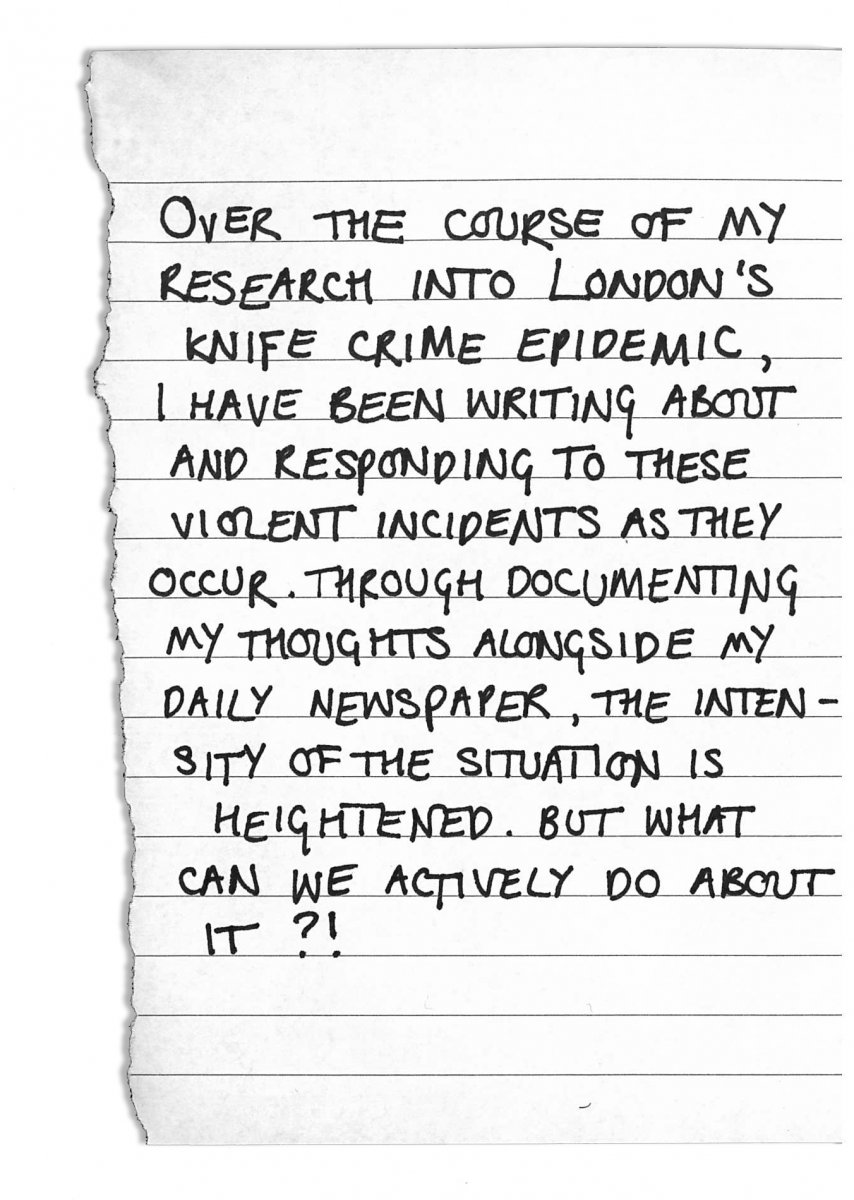 OVER THE COURSE OF MY
RESEARCH INTO LONDON'S
KNIFE CRIME EPIDEMIC,
I HAVE BEEN WRITING ABOUT
AND RESPONDING TO THESE
VIOLENT INCIDENTS AS THEY
OCCUR. THROUGH DOCUMENTING
MY THOUGHTS ALONGSIDE MY
DAILY NEWSPAPER, THE INTEN-
SITY OF THE SITUATION IS
HEIGHTENED. BUT WHAT
CAN WE ACTIVELY DO ABOUT
IT ?!